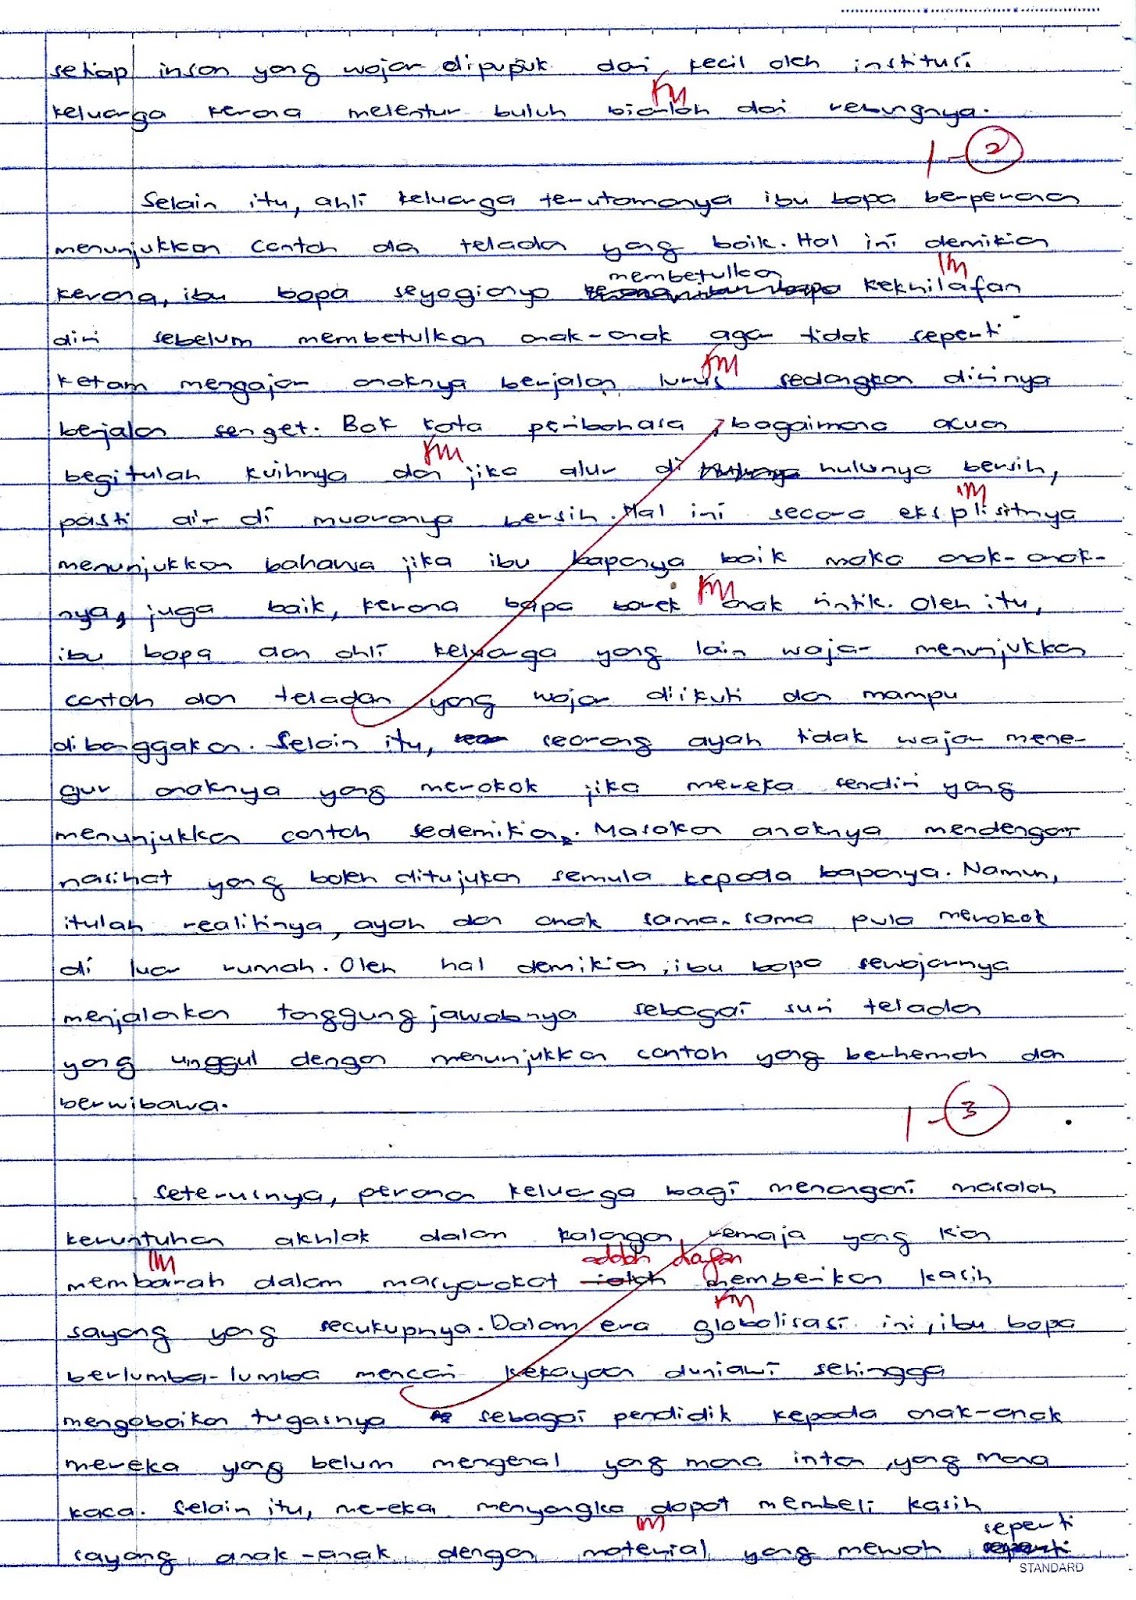 setiap insan yang wajar dipupuk dari kecil oleh institusi
km
keluarga kerana melentur buluh biarlah dari rebungnya.
1-2
Selain itu, ahli keluarga terutamanya ibu bapa berperanan
menunjukkan contoh dan teladan yang baik. Hal ini demikian
membetulkan
km
kerana, ibu bapa seyogianya kekhilafan
diri sebelum membetulkan anak-anak agar tidak seperti
km
ketam mengajar anaknya berjalan lurus sedangkan dirinya
berjalan senget. Bak kata peribahasa, bagaimana acuan
km
begitulah kuihnya dan jika alur di hulunya bersih,
km
pasti air di muaranya bersih. Hal ini secara eksplisitnya
menunjukkan bahawa jika ibu bapanya baik maka anak-anak-
km
nya, juga baik, kerana bapa borek anak rintik. Oleh itu,
ibu bapa dan ahli keluarga yang lain wajar menunjukkan
contoh dan teladan yang wajar diikuti dan mampu
dibanggakan. Selain itu, seorang ayah tidak wajar mene-
gur anaknya yang merokok jika mereka sendiri yang
menunjukkan contoh sedemikian. Masakan anaknya mendengar
nasihat yang boleh ditujukan semula kepada bapanya. Namun,
itulah realitinya, ayah dan anak sama-sama pula merokok
di luar rumah. Oleh hal demikian, ibu bapa sewajarnya
menjalankan tanggungjawabnya sebagai suri teladan
yang unggul dengan menunjukkan contoh yang berhemah dan
berwibawa.
1-3
Seterusnya, peranan keluarga bagi menangani masalah
keruntuhan akhlak dalam kalangan remaja yang kian
km
adalah dengan
membarah dalam masyarakat ialah memberikan kasih
km
sayang yang secukupnya. Dalam era globalisasi ini, ibu bapa
berlumba-lumba mencari kekayaan duniawi sehingga
mengabaikan tugasnya sebagai pendidik kepada anak-anak
mereka yang belum mengenal yang mana intan, yang mana
kaca. Selain itu, mereka menyangka dapat membeli kasih
km
seperti
sayang anak-anak dengan material yang mewah
STANDARD